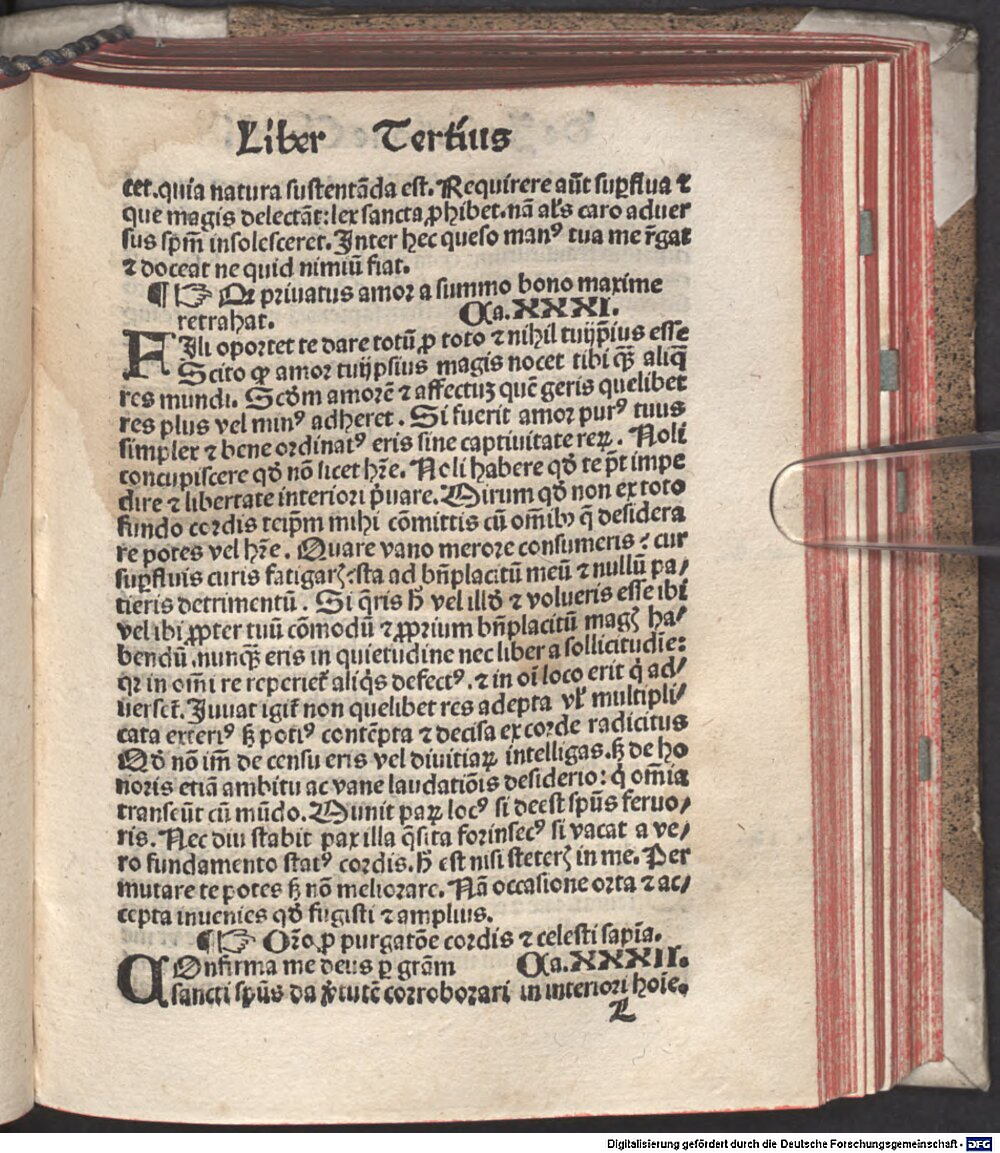 Liber Tertius
cet. quia natura sustentãda est. Requirere aũt suꝑflua ⁊
que magis delectãt: lex sancta ꝓhibet. nã al's caro aduer
sus spm̃ insolesceret. Inter hec queso manꝰ tua me r̃gat
⁊ doceat ne quid nimiũ fiat.
¶ ☞ Qꝛ priuatus amoꝛ a summo bono maxime
retrahat. Ca. XXXI.
FIli oportet te dare totũ ꝓ toto ⁊ nihil tuijp̃ius esse
Scito ꝙ amoꝛ tuijpsius magis nocet tibi qꝫ̃ aliq̃
res mundi. Scd'm amorẽ ⁊ affectuꝫ quẽ geris quelibet
res plus vel minꝰ adheret. Si fuerit amoꝛ purꝰ tuus
simplex ⁊ bene ordinatꝰ eris sine captiuitate reꝝ. Noli
concupiscere qd' nõ licet hr̃e. Noli habere qd' te p̃t impe
dire ⁊ libertate interiori p̃uare. Mirum qd' non ex toto
fundo cordis teip̃m mihi cõmittis cũ om̃ibꝫ q̃ desidera
re potes vel hr̃e. Quare vano merore consumeris? cur
suꝑfluis curis fatigarꝭ? sta ad bñplacitũ meũ ⁊ nullũ pa/
tieris detrimentũ. Si q̃ris h' vel illd' ⁊ volueris esse ibi
vel ibi ꝓpter tuũ cõmodũ ⁊ ꝓprium bñplacitũ magꝭ ha/
bendũ. nunqꝫ̃ eris in quietudine nec liber a sollicitudĩe:
qꝛ in om̃i re reperiet᷑ aliq̇s defectꝰ. ⁊ in oĩ loco erit q̇ ad/
verset᷑. Iuuat igit᷑ non quelibet res adepta vl' multipli/
cata exteriꝰ sꝫ potiꝰ contẽpta ⁊ decisa ex corde radicitus
Qd' nõ im̃ de censu eris vel diuitiaꝝ intelligas. sꝫ de ho
noris etiã ambitu ac vane laudatiõis desiderio: q̃ om̃ia
transeũt cũ mũdo. Munit paꝝ locꝰ si deest spũs feruo/
ris. Nec diu stabit pax illa q̃sita forinsecꝰ si vacat a ve/
ro fundamento statꝰ cordis. h' est nisi steterꝭ in me. Per
mutare te potes sꝫ nõ meliorare. Nã occasione orta ⁊ ac/
cepta inuenies qd' fugisti ⁊ amplius.
¶ ☞ Or̃o ꝓ purgatõe cordis ⁊ celesti sapĩa.
COnfirma me deus ꝑ gr̃am Ca. XXXII.
sancti spũs da v̓tutẽ corroborari in interiori hoĩe.
L
Digitalisierung gefördert durch die Deutsche Forschungsgemeinschaft - DFG